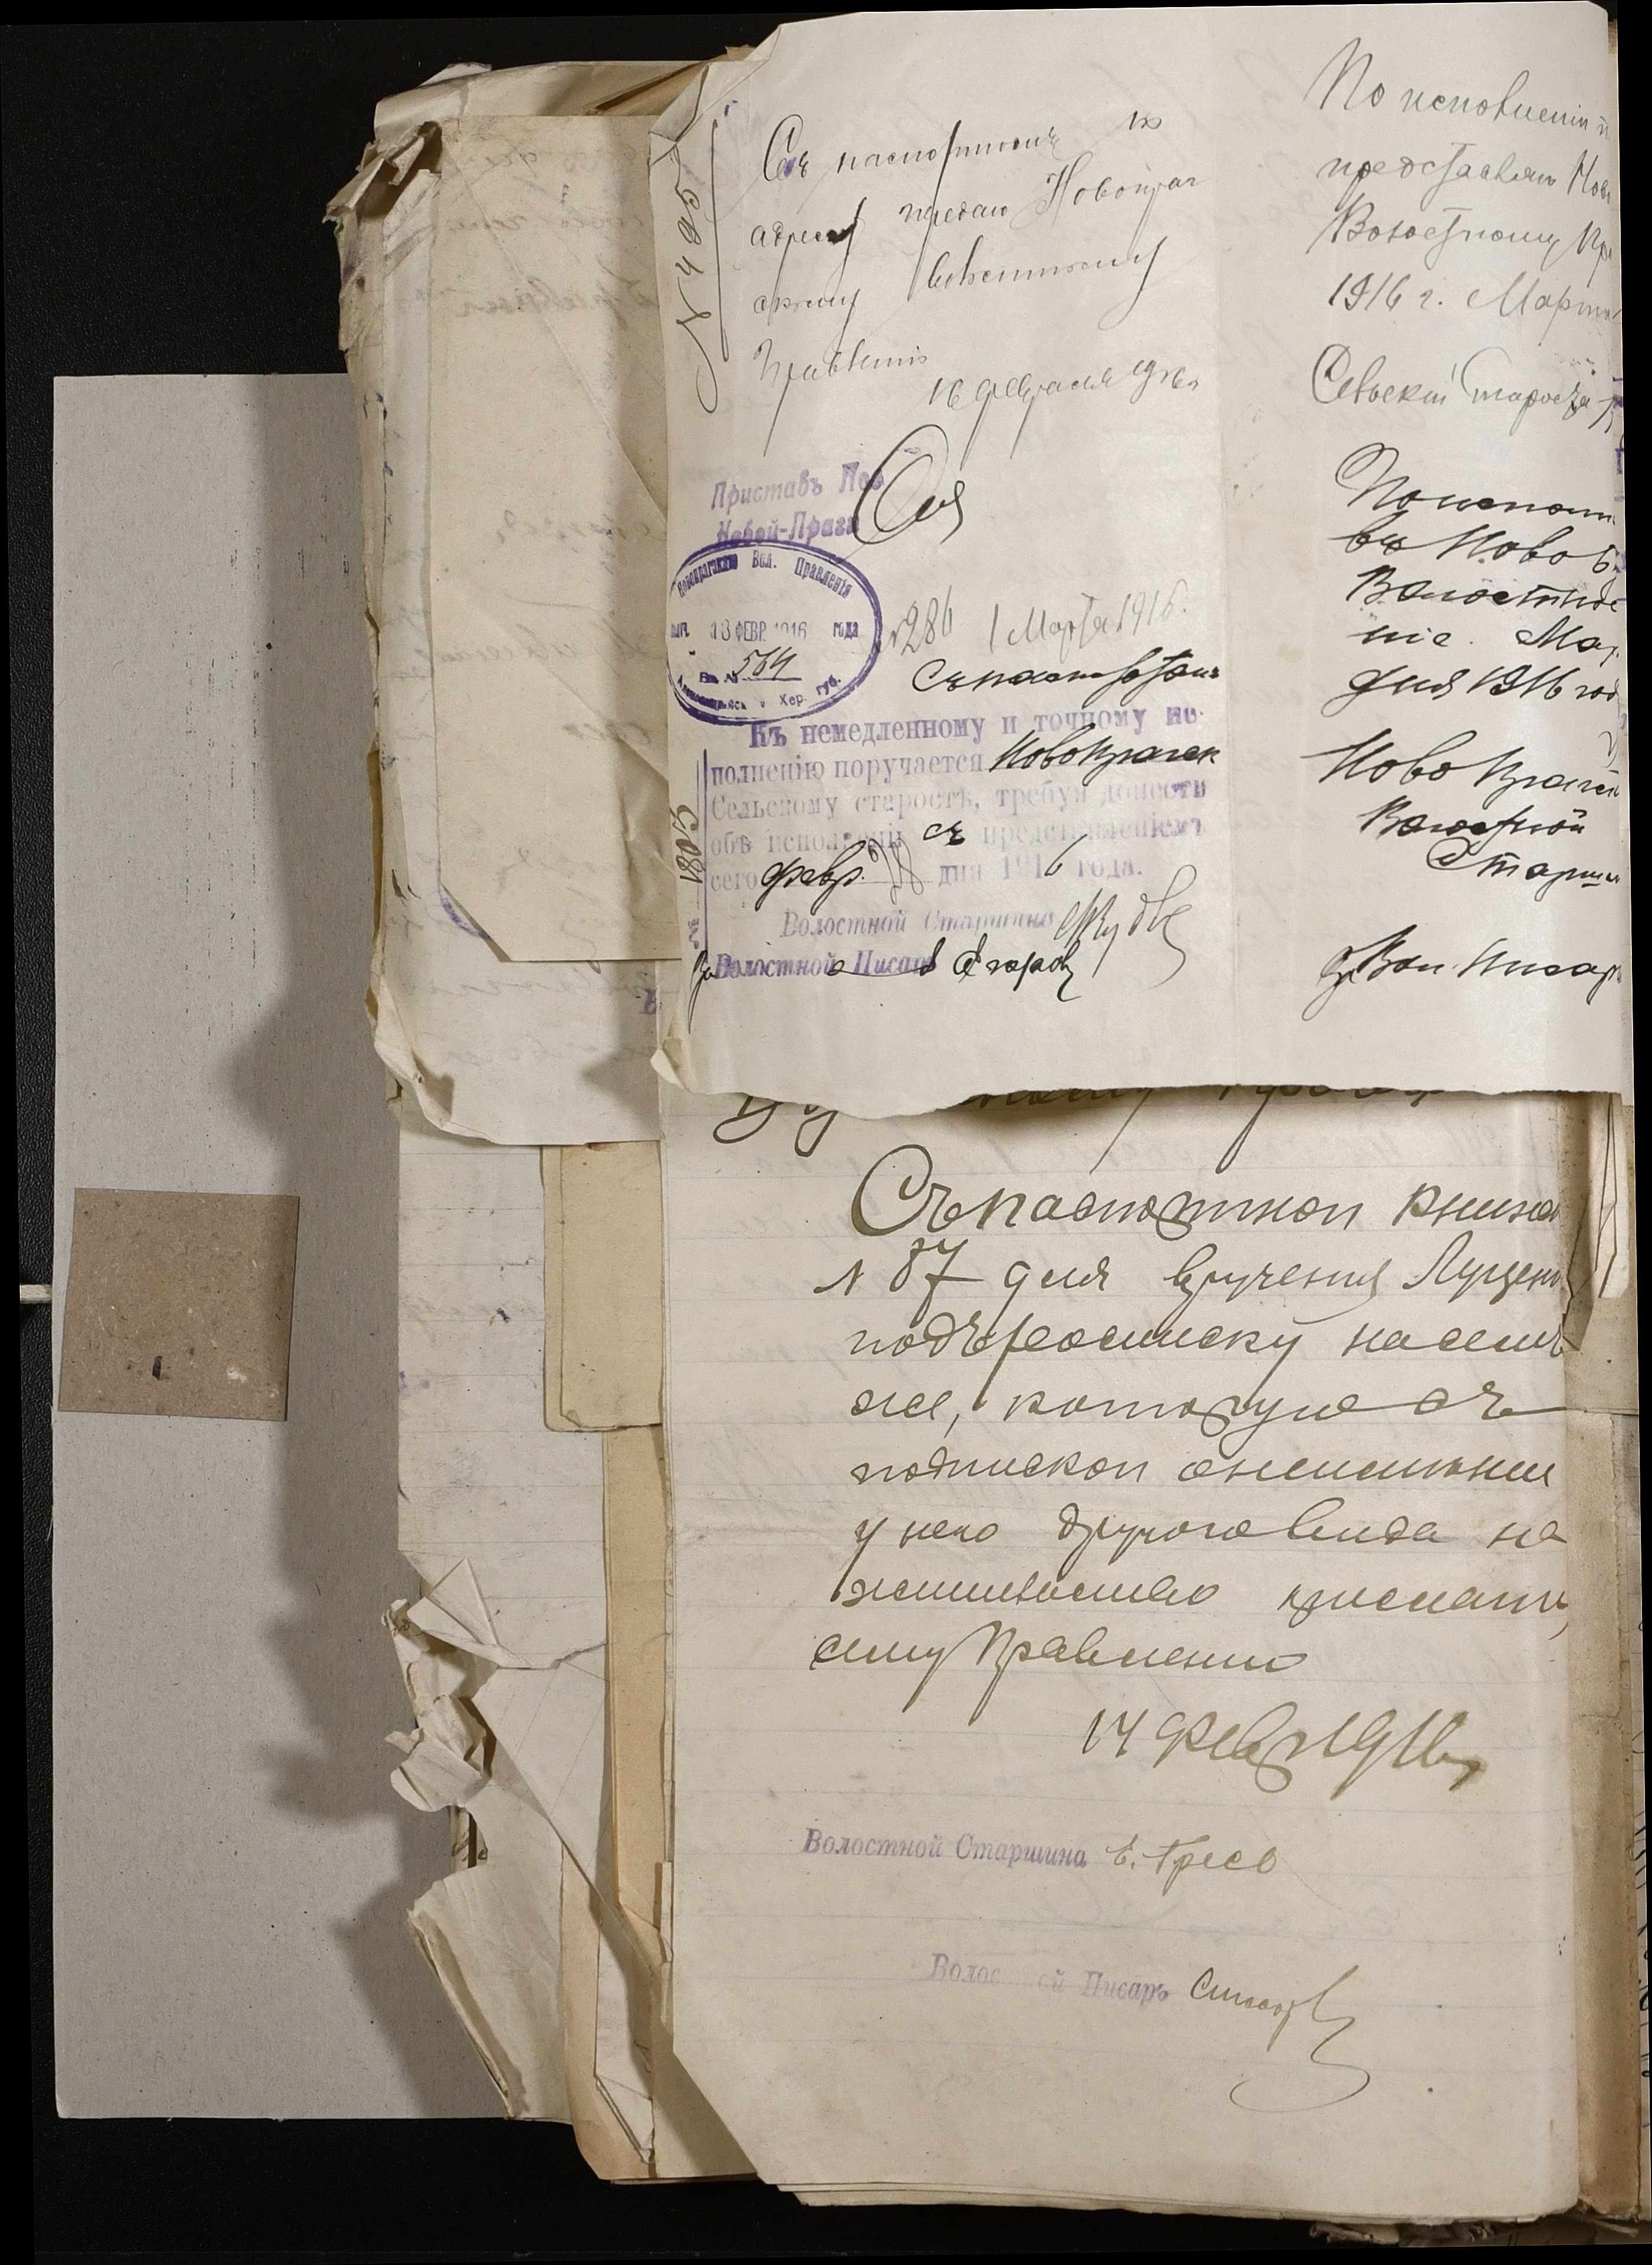 N 495
Съ паспортомъ по
адресу передаю Новопраж
скому Волостному
Правленію
16 февраля 1916 г.
Приставъ Пос
Новой-Праги
Новопражскаго Вол. Правленія
18 ФЕВР. 1916 года
Вх. № 564
Александрійск. у. Хер. губ.
№ 286 1 Марта 1916.
Съ паспортомъ
Къ немедленному и точному ис-
полненію поручается Новопражск
Сельскому старостѣ, требуя донести
объ исполненіи съ представленіемъ
сего февр. 18 дня 1916 года.
№ 1803
Волостной Старшина
Волостной Писарь
По исполненіи
представляю Нов
Волостному Пр
1916 г. Марта
Сельскій Староста
По исполн
въ Ново
Волостное
ніе. Мар
дня 1916 год
Ново Пражск
Волостной
Старши
Вол. Писарь
Съ паспортной книжк
N 87 для вручения Луценк
подъ росписку на сем
же, которую съ
подпиской о неимѣнии
у него другого вида на
жительство прислать
сему Правлению
14 Февр 1916 г
Волостной Старшина Е.
Волостной Писарь